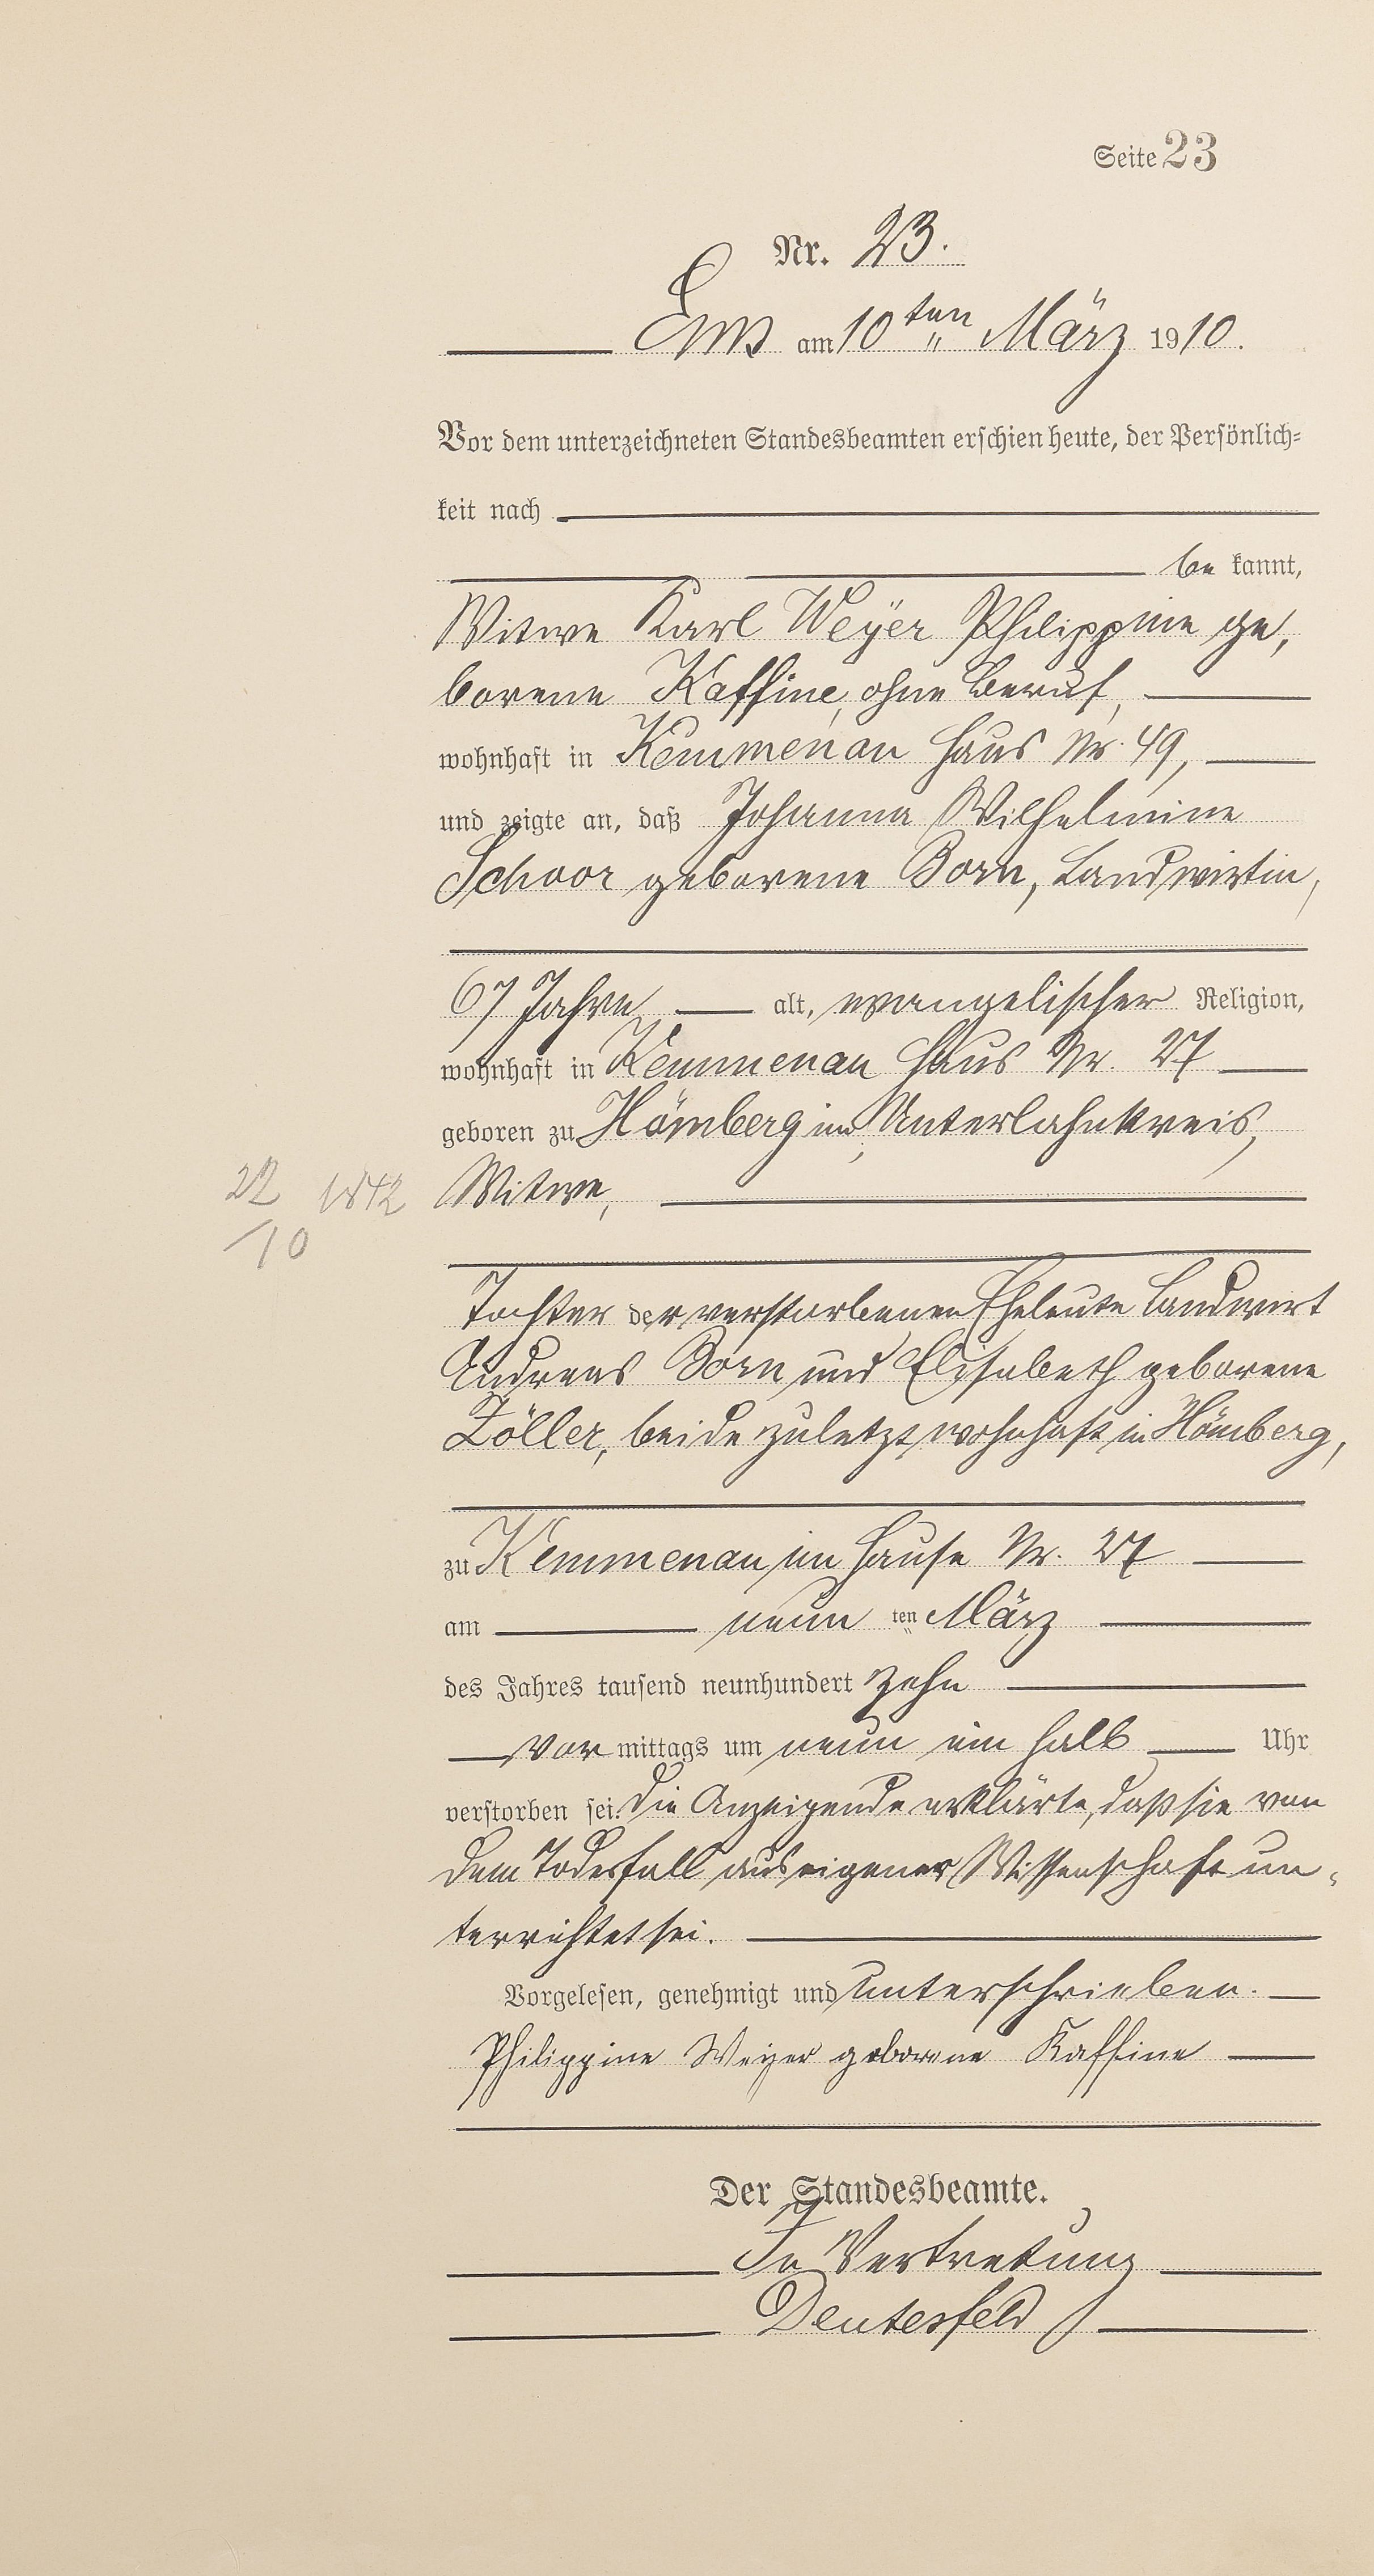 Seite 23
Nr. 23.
Ems am 10ten März 1910.
Vor dem unterzeichneten Standesbeamten erschien heute, der Persönlich-
keit nach
be kannt,
Witwe Karl Weyer Philippine ge,
borene Kaffine, ohne Beruf,
wohnhaft in Kemmenau Haus Nr. 49,
und zeigte an, daß Johanna Wilhelmine
Schoor geborene Born, Landwirtin,
67 Jahre, alt, evangelischer Religion,
wohnhaft in Kemmenau Haus Nr. 27
geboren zu Hömberg im Unterlahnkreis,
22 1842
Witwe,
/10
Tochter der verstorbenen Eheleute Landwirt
Andreas Born und Elisabeth geborene
Zöller, beide zuletzt wohnhaft in Hömberg,
zu Kemmenau im Hause Nr. 27
am neun ten März
des Jahres tausend neunhundert zehn
Vor mittags um neun ein halb Uhr
verstorben sei. Die Anzeigende erklärte, daß sie von
dem Todesfall aus eigener Wissenschaft un-
terrichtet sei.
Vorgelesen, genehmigt und unterschrieben.
Philippine Weyer geborene Kaffine
Der Standesbeamte.
In Vertretung
Deutesfeld